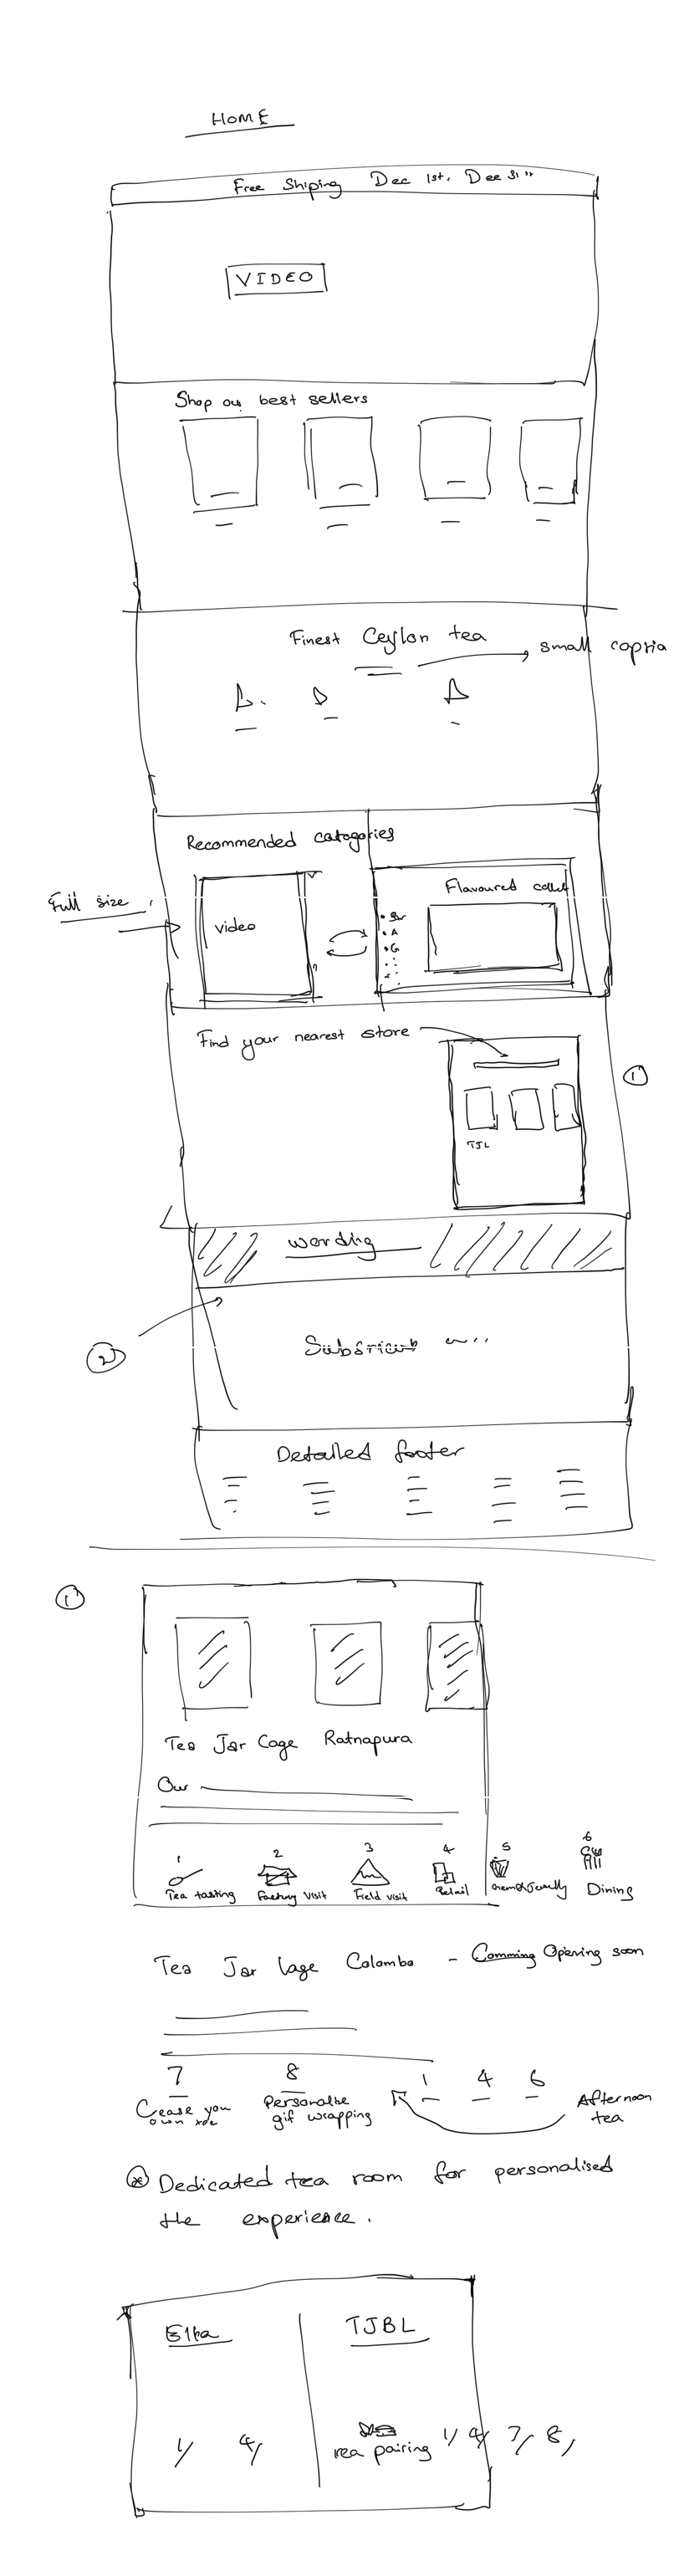 HOME
Free Shiping Dec 1st, Dec 31"
VIDEO
Shop our best sellers
Finest Ceylon tea
small
Recommended catogories
Full size
video
Flavoured collet
A
G
Find your nearest store
1
TJL
wording
2
Detailed footer
1
Tea Jar Cage Ratnapura
Our
1 2 3 4 5 6
Tea tasting Factory visit Field visit Retail Dining
Tea Jar Lage Colombo - Comming Opening soon
7 8 1 4 6
Personalise gif wrapping
Afternoon tea
Dedicated tea room for personalised
the experience.
TJBL
1/ 4/
tea pairing 1/ 4/ 7/ 8,